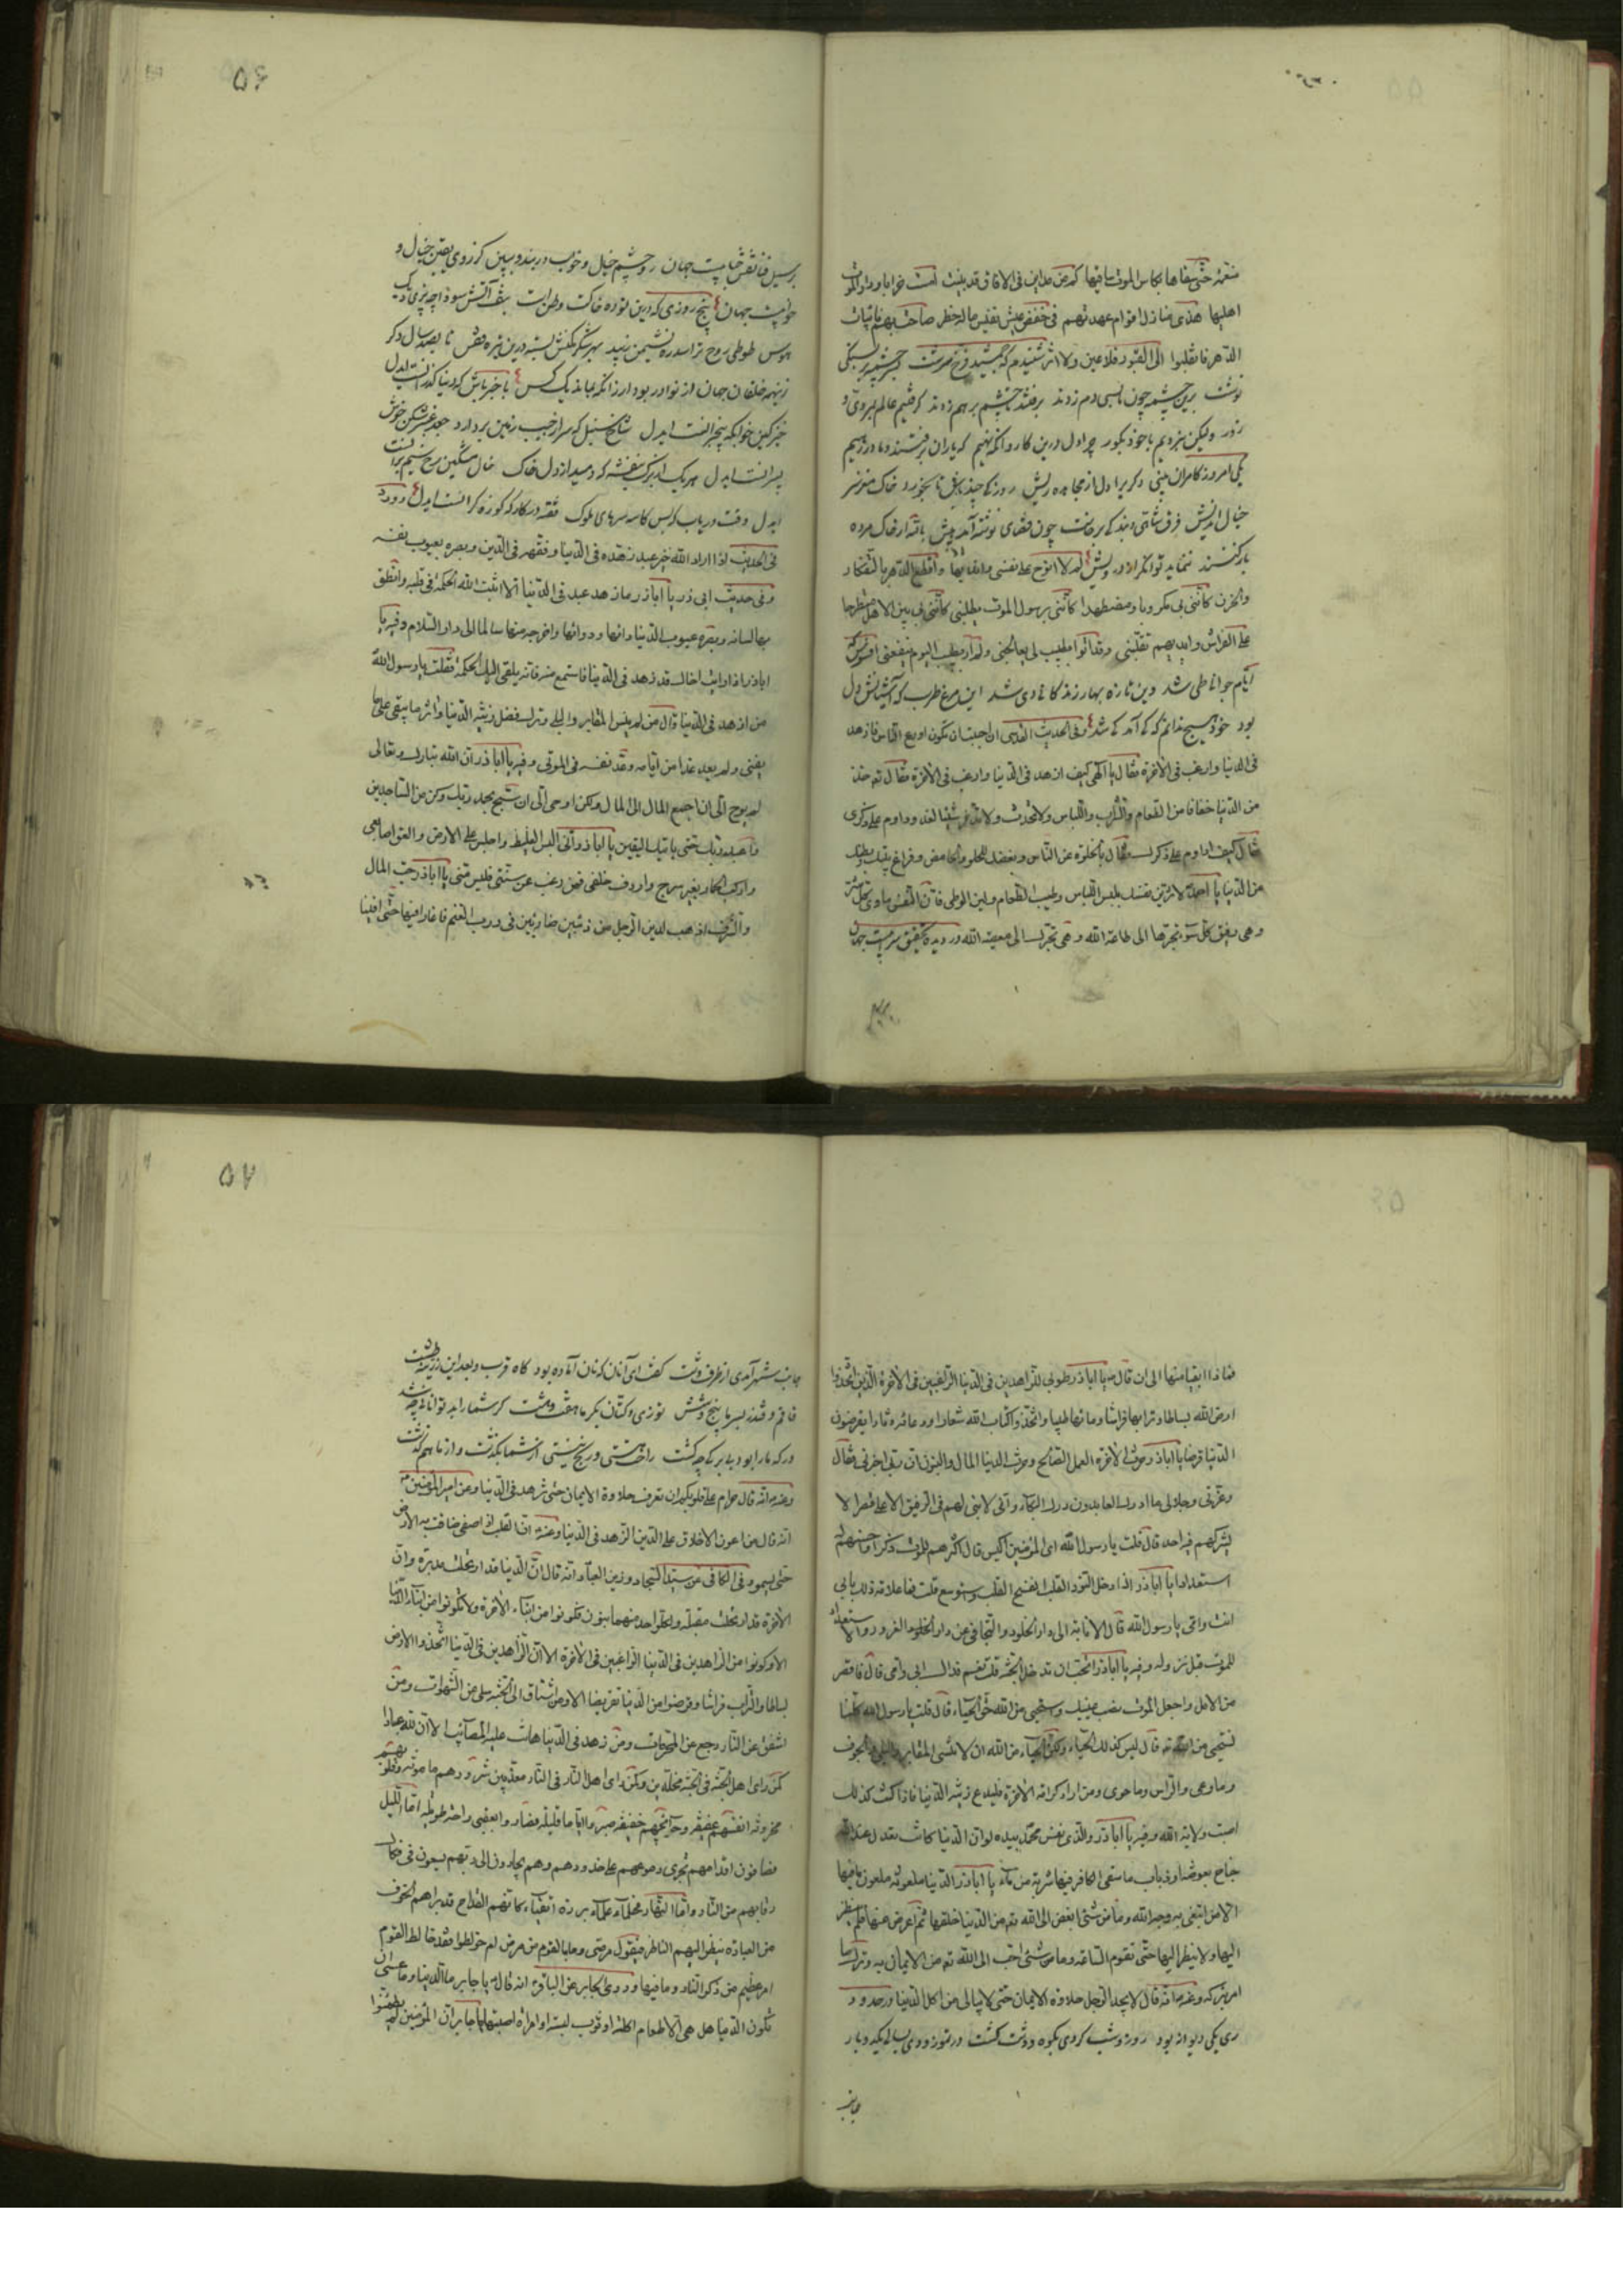 ۵۶
منعمة حتى سقاها بكاس الموت ساقيها كم من مداين فى الافاق قد بنيت امست خرابا ودار الموت
اهليها هذى منازل اقوام عهدتهم فى خفض عيش نفيس ماله خطر صاحت بهم نائبات
الدهر فانقلبوا الى القبور فلا عين ولا اثر شنيدم كه جمشيد فرخ سرشت بسر چشمه بر بسنگى
نوشت برين چشمه چون ما بسى دم زدند برفتند تا چشم بر هم زدند گرفتيم عالم بمردى و
زور وليكن نبرديم با خود بگور چرا دل درين كاروانگه نهيم كه ياران برفتند وما در رهيم
يكى امروز كامران بينى ديگريرا دل از مجاهده ريش روزكى چند باش تا بخورد خاك مغز سر
خيال انديش فرق شاهى وبندگى برخاست چون قضاى نوشته آمد پيش ار خاك مرده
باز كنند ننمايد توانگر از درويش لم لا انوح على نفسى واقطع الدهر بالتفكار
والحزن كاننى بى مكروبا ومضطهدا كاننى برسول الموت يطلبنى كاننى بين الاهل منطرحا
على الفراش وايديهم تقلبنى وقد اتوا بطبيب لى يعالجنى ولم ار طبيب اليوم ينفعنى افسوس كه
ايام جوانى طى شد وين تازه بهار زندگانى دى شد اين مرغ طرب كه آشيانش دل
بود خود هيچ ندانم كه كى آمد كى شد وفى الحديث القدسى ان احببت ان تكون اورع الناس فازهد
فى الدنيا وارغب فى الاخرة فقال يا الهى كيف ازهد فى الدنيا وارغب فى الاخرة فقال تع خذ
من الدنيا خفافا من الطعام والشراب واللباس ولا تدخر شيئا لغد وداوم على ذكرى
فقال كيف اداوم على ذكرك فقال بالخلوة عن الناس وبغضك الحلو والحامض وفراغ بيتك وبطنك
من الدنيا يا احمد لا تزين نفسك بلبس اللباس وطيب الطعام ولين الوطى فان النفس ماوى كل شر
وهى رفيق كل سوء تجرها الى طاعة الله وهى تجرك الى معصية الله در ديده تحقيق سرابيست جهان
بر سيل فنا نقش حبابيست جهان رو چشم خيال و خواب دربند و ببين كز روى يقين خيال و
خوابيست جهان پنج روزى كه درين توده خاكت وطن است
هوس طوطى روح ترا سدره نشيمن زيبد بهر شكر مكنش بسته درين تيره قفس تا بصد سال دگر
زينهمه خلقان جهان از نوادر بود ار زانكه بماند يك كس با خبر باش كه دنيا گذرانست ايدل
خيز كين خوابگه بيخبرانست ايدل شاخ سنبل كه سر از جيب زمين بردارد جعد عنبر شكن خوش
پسرانست ايدل هر يك از برگ بنفشه كه دميد از دل خاك خال مشكين رخ سيمبرانست
ايدل وقت درياب كه بس كاسه سرهاى ملوك وقف در كارگه كوزه گرانست ايدل وورد
فى الحديث اذا اراد الله خير عبد زهده فى الدنيا وفقهه فى الدين وبصره بعيوب نفسه
وفى حديث ابى ذر يا اباذر ما زهد عبد فى الدنيا الا اثبت الله الحكمة فى قلبه وانطق
بها لسانه وبصره عيوب الدنيا وداءها ودواءها واخرجه منها سالما الى دار السلام وفيه يا
اباذر اذا رايت اخاك قد زهد فى الدنيا فاستمع منه فانه يلقى اليك الحكمة فقلت يا رسول الله
من ازهد فى الدنيا قال من لم ينس المقابر والبلى وترك فضل زينة الدنيا واثر ما يبقى على ما
يفنى ولم يعد غدا من ايامه وعد نفسه فى الموتى وفيه يا اباذر ان الله تبارك وتعالى
لم يوح الى ان اجمع المال الى المال ولكن اوحى الى ان سبح بحمد ربك وكن من الساجدين
واعبد ربك حتى ياتيك اليقين يا اباذر انى البس الغليظ واجلس على الارض والعق اصابعى
واركب الحمار بغير سرج واردف خلفى فمن رغب عن سنتى فليس منى يا اباذر حب المال
والشرف اذهب لدين الرجل من ذئبين ضاريين فى زرب الغنم فاغارا فيها حتى
۵۷
فماذا ابقيا منها الى ان قال ص يا اباذر طوبى للزاهدين فى الدنيا الراغبين فى الاخرة الذين اتخذوا
ارض الله بساطا وترابها فراشا وماءها طيبا واتخذوا كتاب الله شعارا ودعاءه دثارا يقرضون
الدنيا قرضا يا اباذر حرث الاخرة العمل الصالح وحرث الدنيا المال والبنون ان ربى اخبرنى فقال
وعزتى وجلالى ما ادرك العابدون درك البكاء وانى لابنى لهم فى الرفيق الاعلى قصرا لا
يشركهم فيه احد قال قلت يا رسول الله اى المؤمنين اكيس قال اكثرهم للموت ذكرا واحسنهم له
استعدادا يا اباذر اذا دخل النور القلب انفسح القلب واتسوسع قلت فما علامة ذلك بابى
انت وامى يا رسول الله قال الانابة الى دار الخلود والتجافى عن دار الغرور والاستعداد
للموت قبل نزوله وفيه يا اباذر اتحب ان تدخل الجنة قلت نعم فداك ابى وامى قال فاقصر
من الامل واجعل الموت نصب عينيك واستحى من الله حق الحياء قال قلت يا رسول الله كلنا
نستحيى من الله قال ليس كذلك الحياء ولكن الحياء من الله ان لا تنسى المقابر والبلى والجوف
وما وعى والراس وما حوى ومن اراد كرامة الاخرة فليدع زينة الدنيا فاذا كنت كذلك
اصبت ولاية الله وفيه يا اباذر والذى نفس محمد بيده لو ان الدنيا كانت تعدل عند الله
جناح بعوضة او ذباب ما سقى الكافر فيها شربة من ماء يا اباذر الدنيا ملعونة ملعون ما فيها
الا من ابتغى به وجه الله وما من شىء ابغض الى الله تع من الدنيا خلقها ثم اعرض عنها فلم ينظر
اليها ولا ينظر اليها حتى تقوم الساعة وما من شىء احب الى الله تع من الايمان به وترك ما
امر بتركه وعنه انه قال لا يجد الرجل حلاوة الايمان حتى لا يبالى من اكل الدنيا ورحدود
رى يكى ديوانه بود روز وشب كردى بكوه ودشت گشت در تموز و دى بسالى يكدو بار
جانب
جانب شهر آمدى از طرف دشت گفت اى آنان كه تان آماده بود گاه قرب وبعد اين زرينه طشت
قاقم و قندز بسرما پنج و شش توزى و كتان بگرما هفت و هشت گر شما را بد توانائى چه شد
ور كه ما را بود بى برگى چه گشت راحت هستى و رنج نيستى از شما بگذشت و از ما هم گذشت
وعنه انه قال حرام على قلوبكم ان تعرف حلاوة الايمان حتى تزهد فى الدنيا وعن امير المؤمنين
انه قال من اعون الاخلاق على الدين الزهد فى الدنيا وعنه ان القلب اذا صفى ضاقت به الارض
حتى يسمو وفى الكافى عن سيد السجاد وزين العباد انه قال ان الدنيا قد ارتحلت مدبرة وان
الاخرة قد ارتحلت مقبلة ولكل واحد منهما بنون فكونوا من ابناء الاخرة ولا تكونوا من ابناء الدنيا
الا وكونوا من الزاهدين فى الدنيا الراغبين فى الاخرة الا ان الزاهدين فى الدنيا اتخذوا الارض
بساطا والتراب فراشا وقرضوا من الدنيا تقريضا الا ومن اشتاق الى الجنة سلى عن الشهوات ومن
اشفق عن النار رجع عن المحرمات ومن زهد فى الدنيا هانت عليه المصائب الا ان لله عبادا
كمن راى اهل الجنة فى الجنة مخلدين وكمن راى اهل النار فى النار معذبين شرورهم مامونة وقلوبهم
محزونة انفسهم عفيفة وحوائجهم خفيفة صبروا اياما قليلة فصاروا بعقبى راحة طويلة اما الليل
فصافون اقدامهم تجرى دموعهم على خدودهم وهم يجارون الى ربهم يسعون فى فكاك
رقابهم من النار واما النهار فحلماء علماء بررة اتقياء كانهم القداح قد براهم الخوف
من العبادة ينظر اليهم الناظر فيقول مرضى وما بالقوم من مرض ام خولطوا فقد خالط القوم
امر عظيم من ذكر النار وما فيها وروى الجابر عن الباقر انه قال يا جابر ما الدنيا وما عسى ان
تكون الدنيا هل هى الا طعام اكلته او ثوب لبسته او امراة اصبتها يا جابر ان المؤمنين لم يطمئنوا